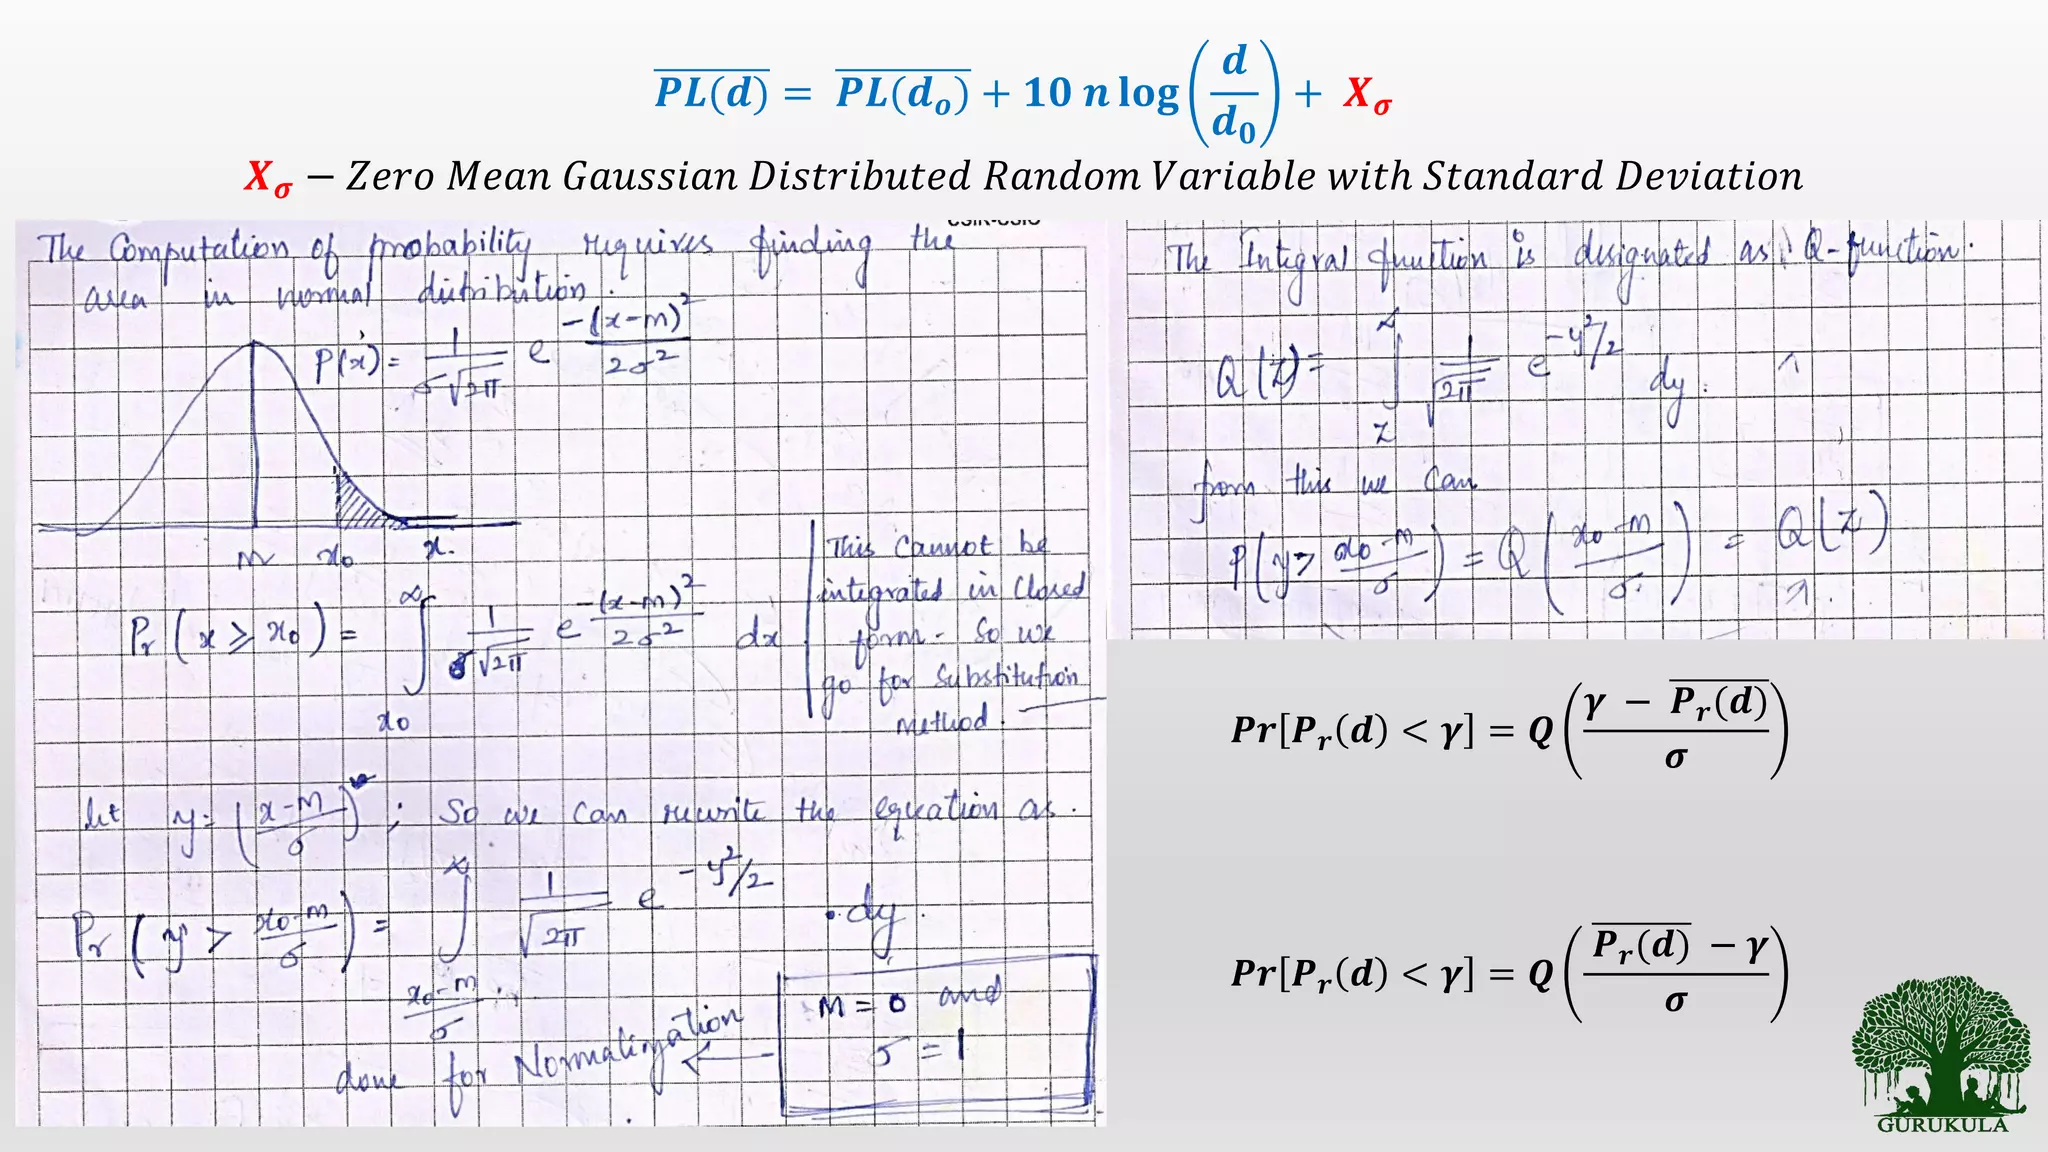 PL(d) = PL(dₒ) + 10 n log (d/d₀) + X_σ
X_σ − Zero Mean Gaussian Distributed Random Variable with Standard Deviation
The Computation of probability requires finding the
area in normal distribution.
P(x) = 1/(σ√2π) e^(-(x-m)²/2σ²)
m x₀ x.
Pr (x ≥ x₀) = ∫_{x₀}^{∞} 1/(σ√2π) e^(-(x-m)²/2σ²) dx
This Cannot be
integrated in Closed
form. So we
go for Substitution
method.
let y = (x-m/σ) ; So we can rewrite the equation as.
Pr (y > x₀-m/σ) = ∫_{x₀-m/σ}^{∞} 1/√2π e^(-y²/2) . dy.
m = 0 and
σ = 1
done for Normalization
The Integral function is designated as Q-function.
Q(z) = ∫_{z}^{∞} 1/√2π e^(-y²/2) dy.
from this we can
P(y > x₀-m/σ) = Q(x₀-m/σ) = Q(z)
Pr[P_r(d) < γ] = Q((γ − P_r(d))/σ)
Pr[P_r(d) < γ] = Q((P_r(d) − γ)/σ)
GURUKULA